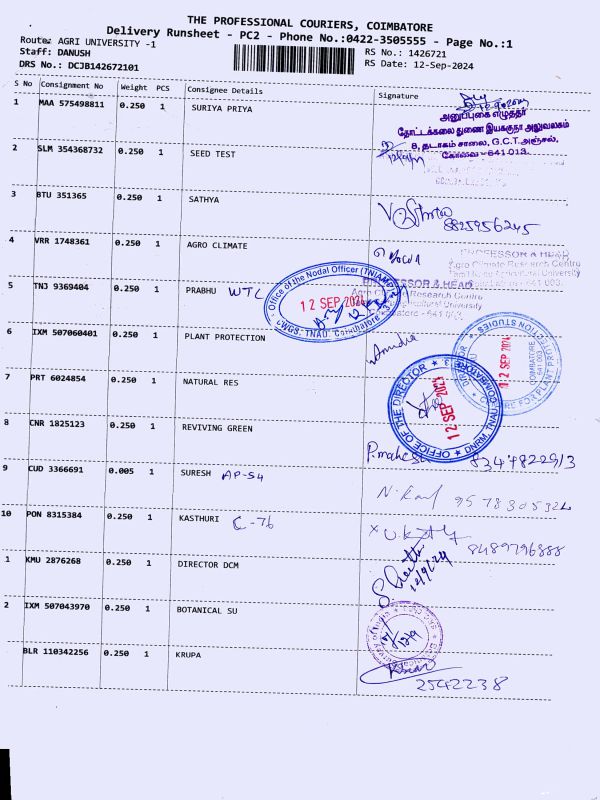 THE PROFESSIONAL COURIERS, COIMBATORE
Delivery Runsheet - PC2 - Phone No.:0422-3505555 - Page No.:1
Route: AGRI UNIVERSITY -1
Staff: DANUSH
DRS No.: DCJB142672101
RS No.: 1426721
RS Date: 12-Sep-2024
S No Consignment No Weight PCS Consignee Details Signature
1 MAA 575498811 0.250 1 SURIYA PRIYA
அனுப்புகை எழுத்தர்
தோட்டக்கலை துணை இயக்குநர் அலுவலகம்
8, தடாகம் சாலை, G.C.T. அஞ்சல்,
கோவை - 641 013.
2 SLM 354368732 0.250 1 SEED TEST
3 BTU 351365 0.250 1 SATHYA
8825956245
4 VRR 1748361 0.250 1 AGRO CLIMATE
PROFESSOR & HEAD
Agro Climate Research Centre
Tamil Nadu Agricultural University
5 TNJ 9369404 0.250 1 PRABHU WTC
Office of the Nodal Officer (TNIAMP)
12 SEP 2024
CWGS, TNAU, Coimbatore-3
PROFESSOR & HEAD
Agro Climate Research Centre
6 IXM 507060401 0.250 1 PLANT PROTECTION
DIRECTOR
CENTRE FOR PLANT PROTECTION STUDIES
12 SEP 2024
COIMBATORE
641 003
7 PRT 6024854 0.250 1 NATURAL RES
OFFICE OF THE DIRECTOR
12 SEP 2024
DNRM, TNAU, COIMBATORE-3
8 CNR 1825123 0.250 1 REVIVING GREEN
P.mahesh 8347822913
9 CUD 3366691 0.005 1 SURESH AP-54
9578305324
10 PON 8315384 0.250 1 KASTHURI C-76
8489796888
1 KMU 2876268 0.250 1 DIRECTOR DCM
12/9/24
2 IXM 507043970 0.250 1 BOTANICAL SU
12/9
BLR 110342256 0.250 1 KRUPA
2542238